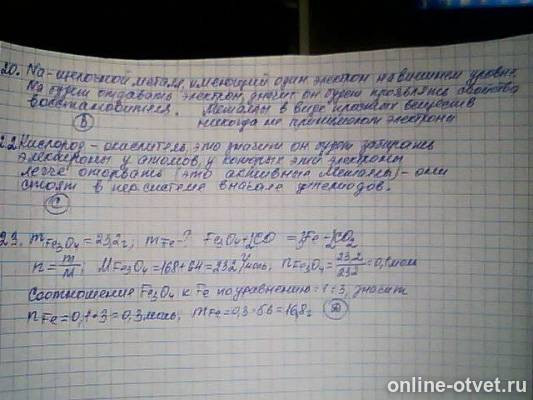 20. Na - щелочной металл, имеющий один электрон на внешнем уровне.
Na будет отдавать электрон, значит он будет проявлять свойства
восстановителя. Металлы в виде простых веществ
никогда не принимают электроны
В
22 Кислород - окислитель, это значит он будет забирать
электроны у атомов, у которых эти электроны
легче оторвать (это активные металлы) - они
стоят в пер.системе вначале периодов.
С
23. mFe3O4 = 23,2г, mFe-? Fe3O4+4CO = 3Fe+4CO2
n = m/M; MFe3O4 = 168+64=232 г/моль, nFe3O4 = 23,2/232 = 0,1 моль
Соотношение Fe3O4 к Fe по уравнению = 1:3, значит
nFe = 0,1*3=0,3 моль, mFe=0,3*56=16,8г
online-otvet.ru